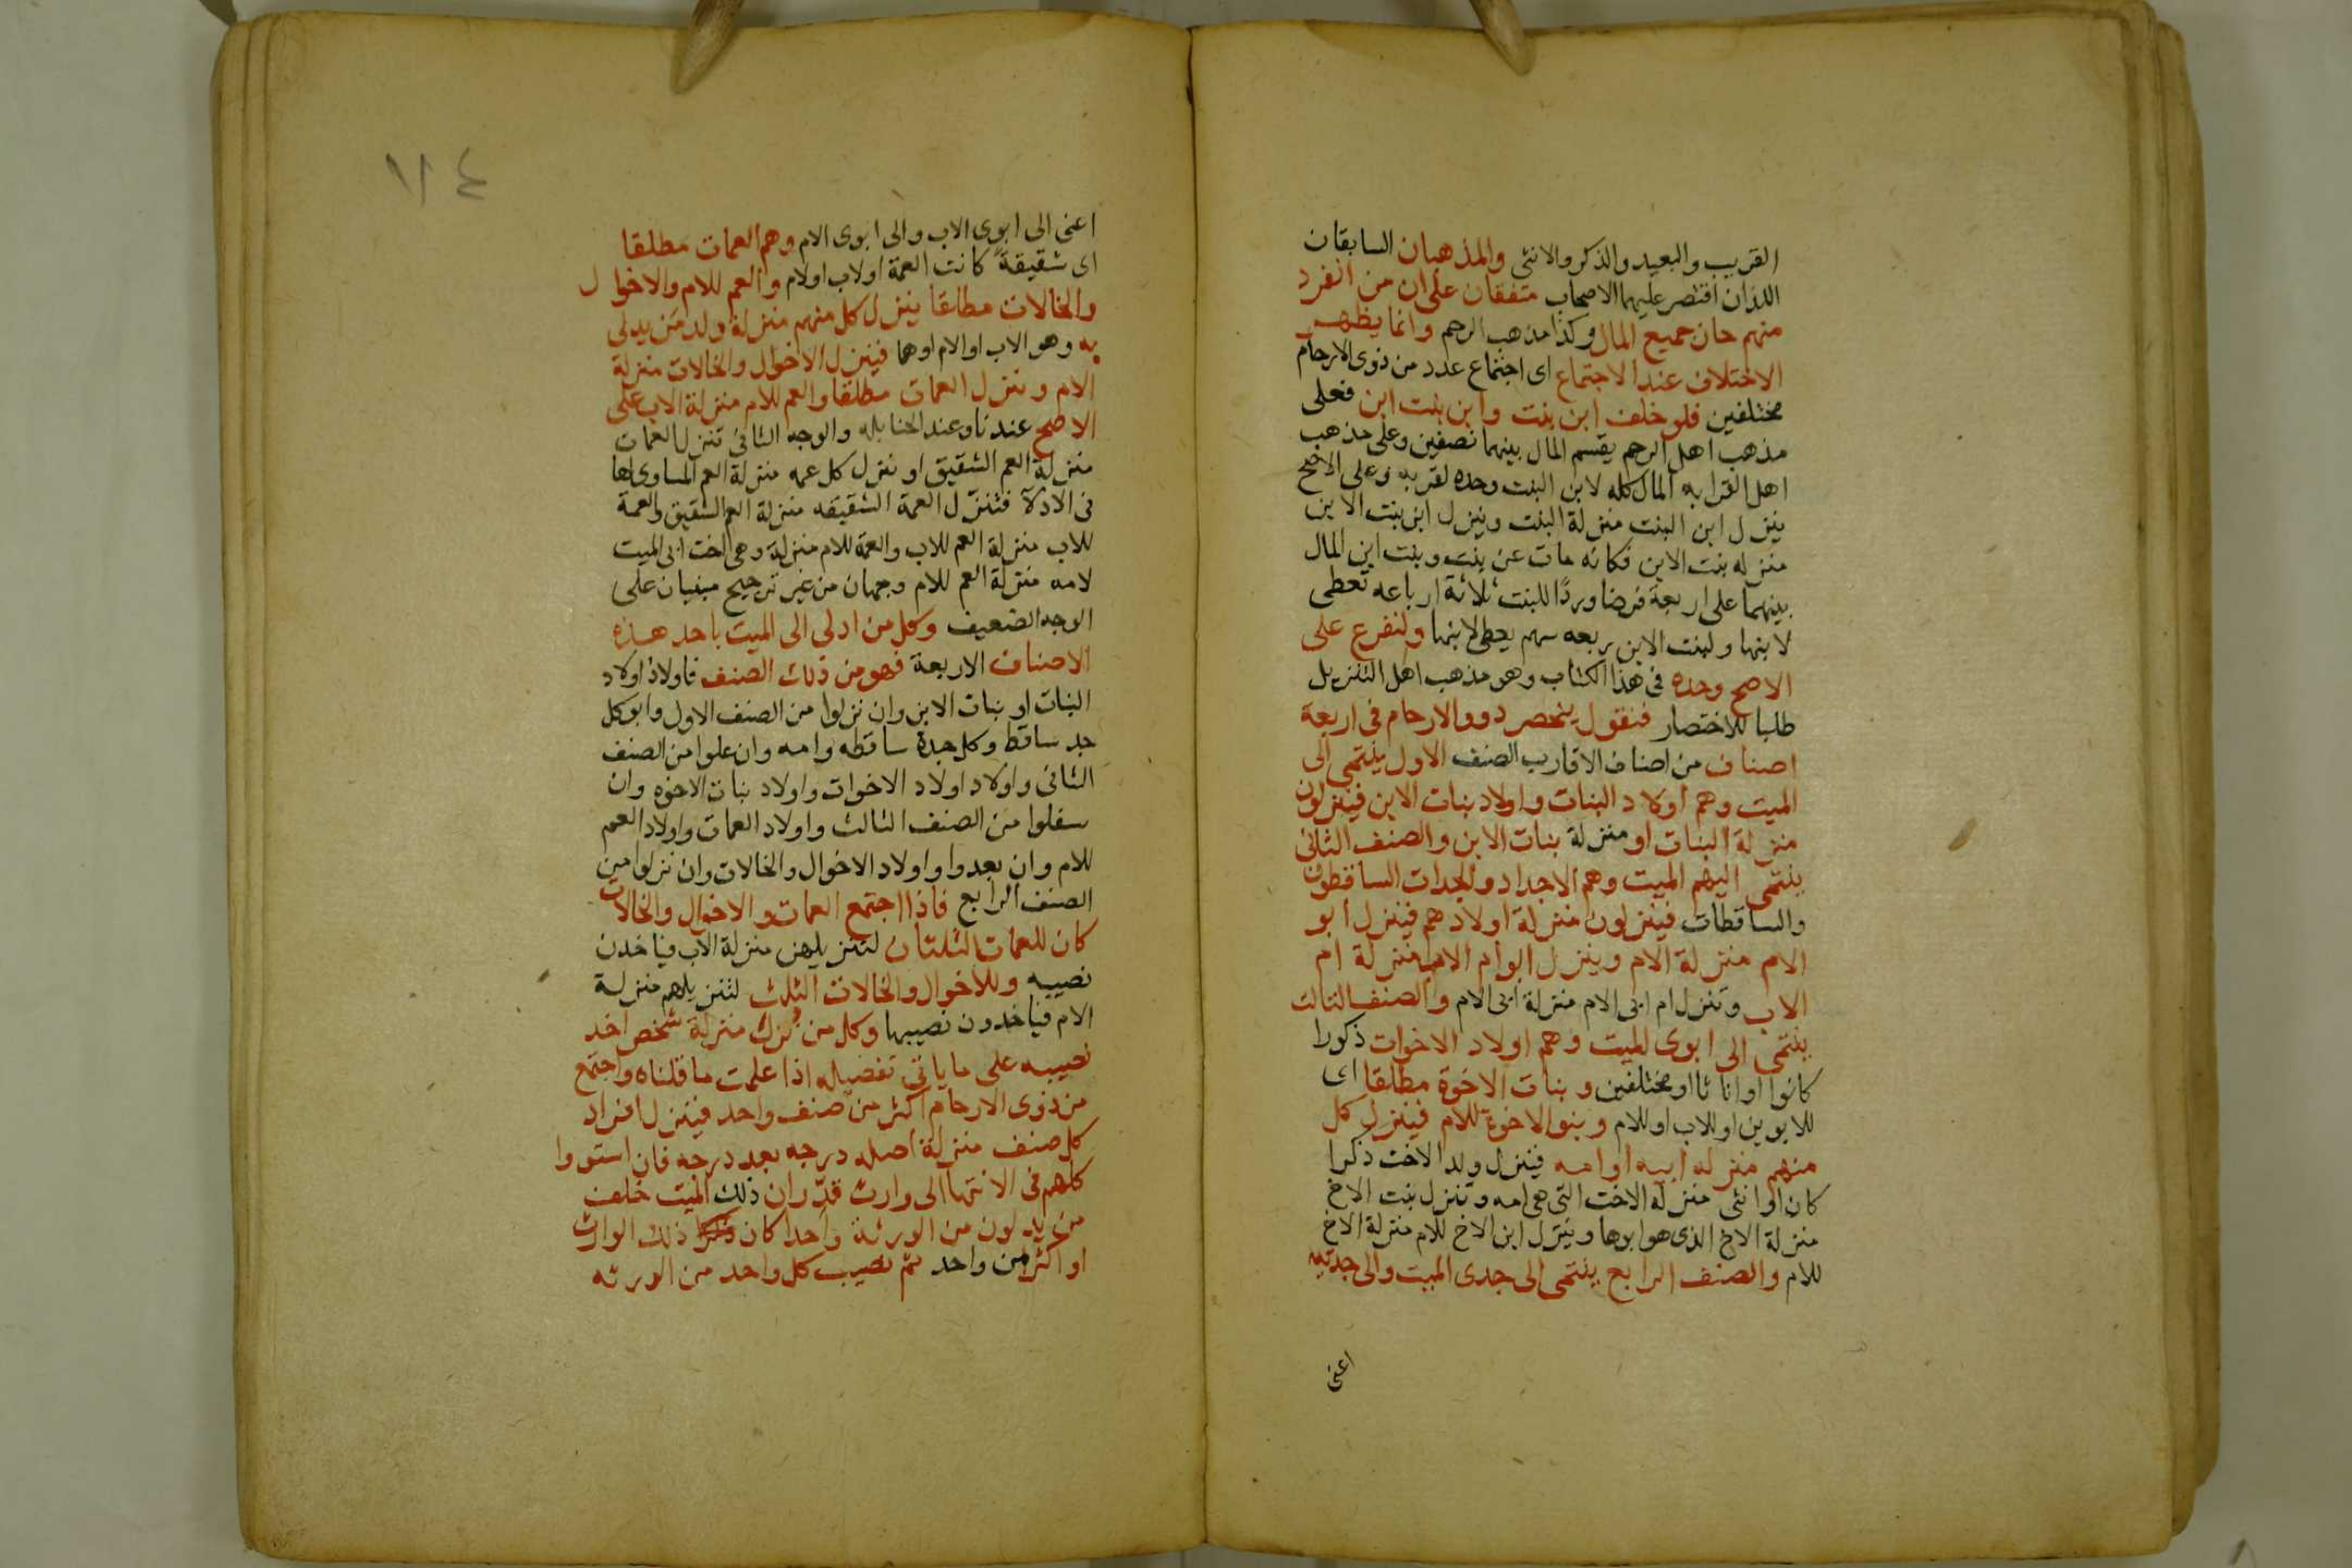 القريب والبعيد والذكر والانثى والمذهبان السابقان
اللذان اقتصر عليهما الاصحاب متفقان على ان من انفرد
منهم حاز جميع المال وكذا مذهب الرحم وانما يظهر
الاختلاف عند الاجتماع اى اجتماع عدد من ذوى الارحام
مختلفين فلو خلف ابن بنت وابن بنت ابن فعلى
مذهب اهل الرحم يقسم المال بينهما نصفين وعلى مذهب
اهل القرابه المال كله لابن البنت وحده لقربه وعلى الاصح
ينزل ابن البنت منزلة البنت وينزل ابن بنت الابن
منزله بنت الابن فكانه مات عن بنت وبنت ابن المال
بينهما على اربعة فرضا وردًا للبنت ثلاثة ارباعه تعطى
لابنها ولبنت الابن ربعه سهم يعطى لابنها ولنفرع على
الاصح وحده فى هذا الكتاب وهو مذهب اهل التنزيل
طلبا للاختصار فنقول ينحصر ذوو الارحام فى اربعة
اصناف من اصناف الاقارب الصنف الاول ينتمى الى
الميت وهم اولاد البنات واولاد بنات الابن فينزلون
منزلة البنات او منزلة بنات الابن والصنف الثانى
ينتمى اليهم الميت وهم الاجداد والجدات الساقطون
والساقطات فينزلون منزلة اولادهم فينزل ابو
الام منزلة الام وينزل ابو ام الاب منزلة ام
الاب وتنزل ام ابى الام منزلة ابى الام والصنف الثالث
ينتمى الى ابوى الميت وهم اولاد الاخوات ذكورا
كانوا او اناثا او مختلفين وبنات الاخوة مطلقا اى
للابوين او للاب او للام وبنو الاخوة للام فينزل كل
منهم منزله ابيه او امه فينزل ولد الاخت ذكرا
كان او انثى منزله الاخت التى هى امه وتنزل بنت الاخ
منزلة الاخ الذى هو ابوها وينزل ابن الاخ للام منزلة الاخ
للام والصنف الرابع ينتمى الى جدى الميت والى جدتيه
اعنى
١١٤
اعنى الى ابوى الاب والى ابوى الام وهم العمات مطلقا
اى شقيقةً كانت العمة او لاب او لام والعم للام والاخوال
والخالات مطلقا ينزل كل منهم منزلة ولد من يدلى
به وهو الاب او الام او هما فينزل الاخوال والخالات منزلة
الام وتنزل العمات مطلقا والعم للام منزلة الاب على
الاصح عندنا وعند الحنابله والوجه الثانى تنزل العمات
منزلة العم الشقيق او تنزل كل عمه منزلة العم المساوى لها
فى الادلآ فتنزل العمة الشقيقه منزلة العم الشقيق والعمة
للاب منزلة العم للاب والعمة للام منزلة وهى اخت ابى الميت
لامه منزلة العم للام وجهان من غير ترجيح مبنيان على
الوجه الضعيف وكل من ادلى الى الميت باحد هذه
الاصناف الاربعة فهو من ذلك الصنف فاولاد اولاد
البنات او بنات الابن وان نزلوا من الصنف الاول وابو كل
جد ساقط وكل جدة ساقطه وامه وان علوا من الصنف
الثانى واولاد اولاد الاخوات واولاد بنات الاخوه وان
سفلوا من الصنف الثالث واولاد العمات واولاد العم
للام وان بعدوا واولاد الاخوال والخالات وان نزلوا من
الصنف الرابع فاذا اجتمع العمات والاخوال والخالات
كان للعمات الثلثان لتنزيلهن منزلة الاب فياخذن
نصيبه وللاخوال والخالات الثلث لتنزيلهم منزلة
الام فياخذون نصيبها وكل من نزل منزلة شخص اخذ
نصيبه على ما ياتى تفصيله اذا علمت ما قلناه واجتمع
من ذوى الارحام اكثر من صنف واحد فينزل افراد
كل صنف منزلة اصله درجه بعد درجه فان استووا
كلهم فى الانتها الى وارث قدّر ان ذلك الميت خلف
من يدلون من الورثة واحدا كان ذلك الوارث
او اكثر من واحد ثم نصيب كل واحد من الورثه